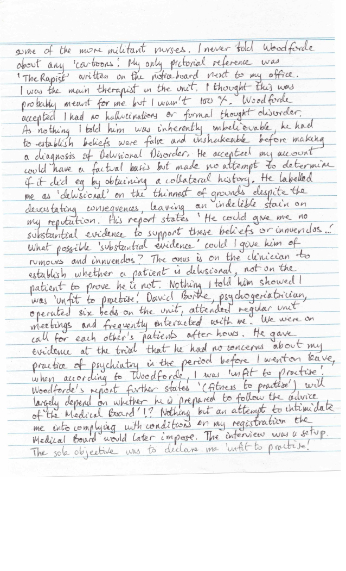 some of the more militant nurses. I never told Woodforde
about any 'cartoons'! My only pictorial reference was
'TheRapist' written on the noticeboard next to my office.
I was the main therapist in the unit. I thought this was
probably meant for me but I wasn't 100%. Woodforde
accepted I had no hallucinations or formal thought disorder.
As nothing I told him was inherently unbelievable, he had
to establish beliefs were false and unshakeable before making
a diagnosis of Delusional Disorder. He accepted my account
could have a factual basis but made no attempt to determine
if it did eg by obtaining a collateral history. He labelled
me as 'delusional' on the thinnest of grounds despite the
devastating consequences, leaving an indelible stain on
my reputation. His report states 'He could give me no
substantial evidence to support these beliefs or innuendos...'
What possible 'substantial evidence' could I give him of
rumours and innuendos? The onus is on the clinician to
establish whether a patient is delusional, not on the
patient to prove he is not. Nothing I told him showed I
was 'unfit to practise'. David Burke, psychogeriatrician,
operated six beds on the unit, attended regular unit
meetings and frequently interacted with me. We were on
call for each other's patients after hours. He gave
evidence at the trial that he had no concerns about my
practice of psychiatry in the period before I went on leave,
when according to Woodforde, I was 'unfit to practise'.
Woodforde's report further states '(fitness to practise) will
largely depend on whether he is prepared to follow the advice
of the Medical Board'!? Nothing but an attempt to intimidate
me into complying with conditions on my registration the
Medical Board would later impose. The interview was a setup.
The sole objective was to declare me 'unfit to practise'.